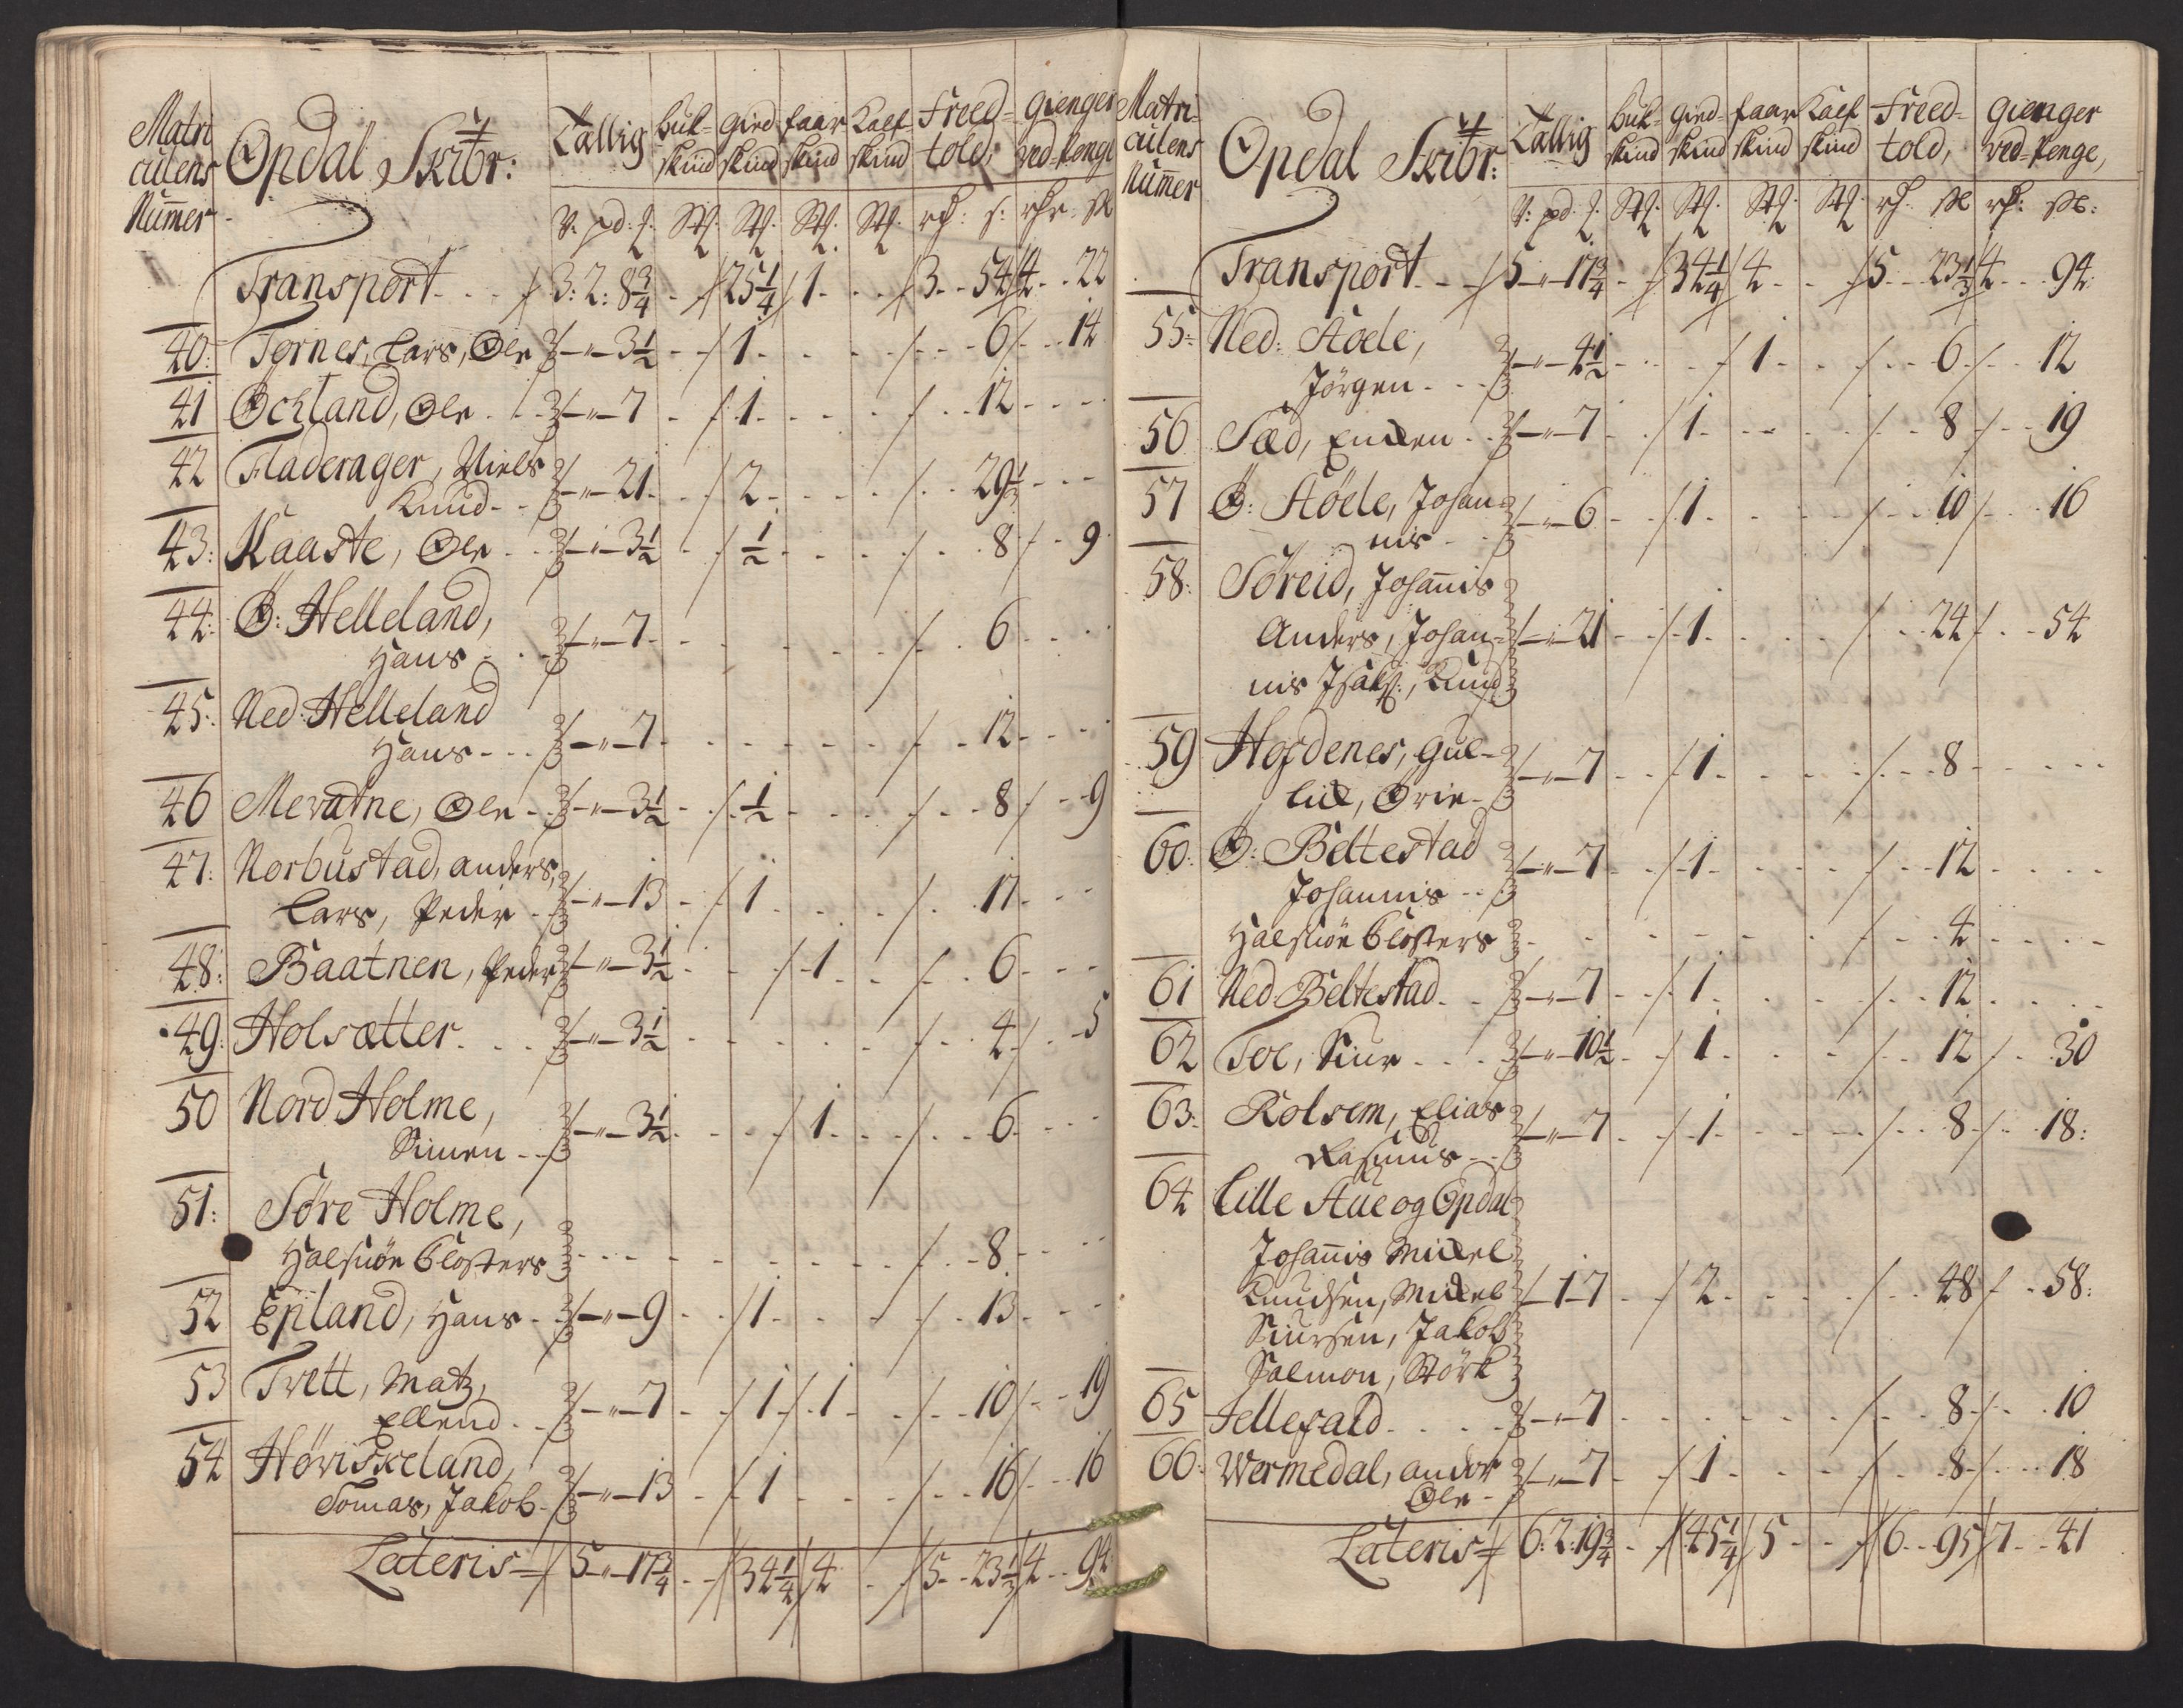 Matri
culens
Numer
Opdal Skibr:
Tallig
Buk-
skind
Gied
skind
faar
skind
Kalf
skind
Freed-
told,
Gienger
ved Penge
V: pd: [?]
Transport 3: 2: 8 3/4 25 1/4 1 3 54 4 22
40: Tornes, Lars, Ole 3 1/2 1 6 14
41 Øchland, Ole 7 1 12
42 Fladerager, Niels
Knud 21 2 29 1/3
43: Kaaste, Ole 3 1/2 1/2 8 9
44: Ø: Helleland,
Hans 7 6
45: Ned: Helleland
Hans 7 12
46 Mevatne, Ole 3 1/2 1/2 8 9
47: Norbustad, anders,
Lars, Peder 13 1 17
48: Baatnen, Peder 3 1/2 1 6
49: Holsætter 3 1/2 4 5
50 Nord Holme,
Simen 3 1/2 1 6
51: Søre Holme,
Halsnöe Closters 8
52 Epland, Hans 9 1 13
53 Tvett, Matz,
Ellend 7 1 1 10 19
54 Høviskeland,
Tomas, Jakob 13 1 16 16
Lateris 5 17 3/4 34 1/4 4 5 23 1/3 4 94
Matri-
culens
Numer
Opdal Skibr:
Tallig
Buk-
skind
Gied-
skind
faar
skind
Kalf
skind
Freed-
told,
Gienger
ved Penge,
Transport 5 17 3/4 34 1/4 4 5 23 1/3 4 94
55: Ned: Aöele,
Jörgen 4 1/2 1 6 12
56 Sæd, 7 1 8 19
57 Ø: Aöele, Johan=
nis 6 1 10 16
58: Søreid, Johannis
Anders, Johan=
nis Isaks:, Knud 21 1 24 54
59 Hofdenes, Gul-
lik, Brie 7 1 8
60: Ø: Beltestad
Johannis 7 1 12
Halsnöe Closters 4
61 Ned Beltestad 7 1 12
62 Toe, Siur 10 1/2 1 12 30
63: Rolsem, Elias
Rasmus 7 1 8 18:
64 Lille Aae og Opdal
Johannis Mikel
Knudsen, Mikel
Siursen, Jakob
Salmon, Störk 1 7 2 48 58:
65 Fellefald 7 8 10
66: Wermedal, andor
Ole 7 1 8 18
Lateris 6: 2: 19 3/4 45 1/4 5 6 95 7 41